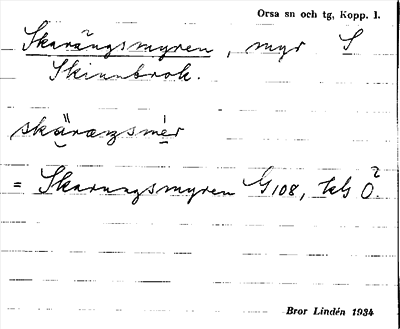 Orsa sn och tg, Kopp. l.
Skarängsmyren, myr S
Skinnbrok.
skäraŋsmér
= Skarungsmyren G108, kbl Ö.
Bror Lindén 1934